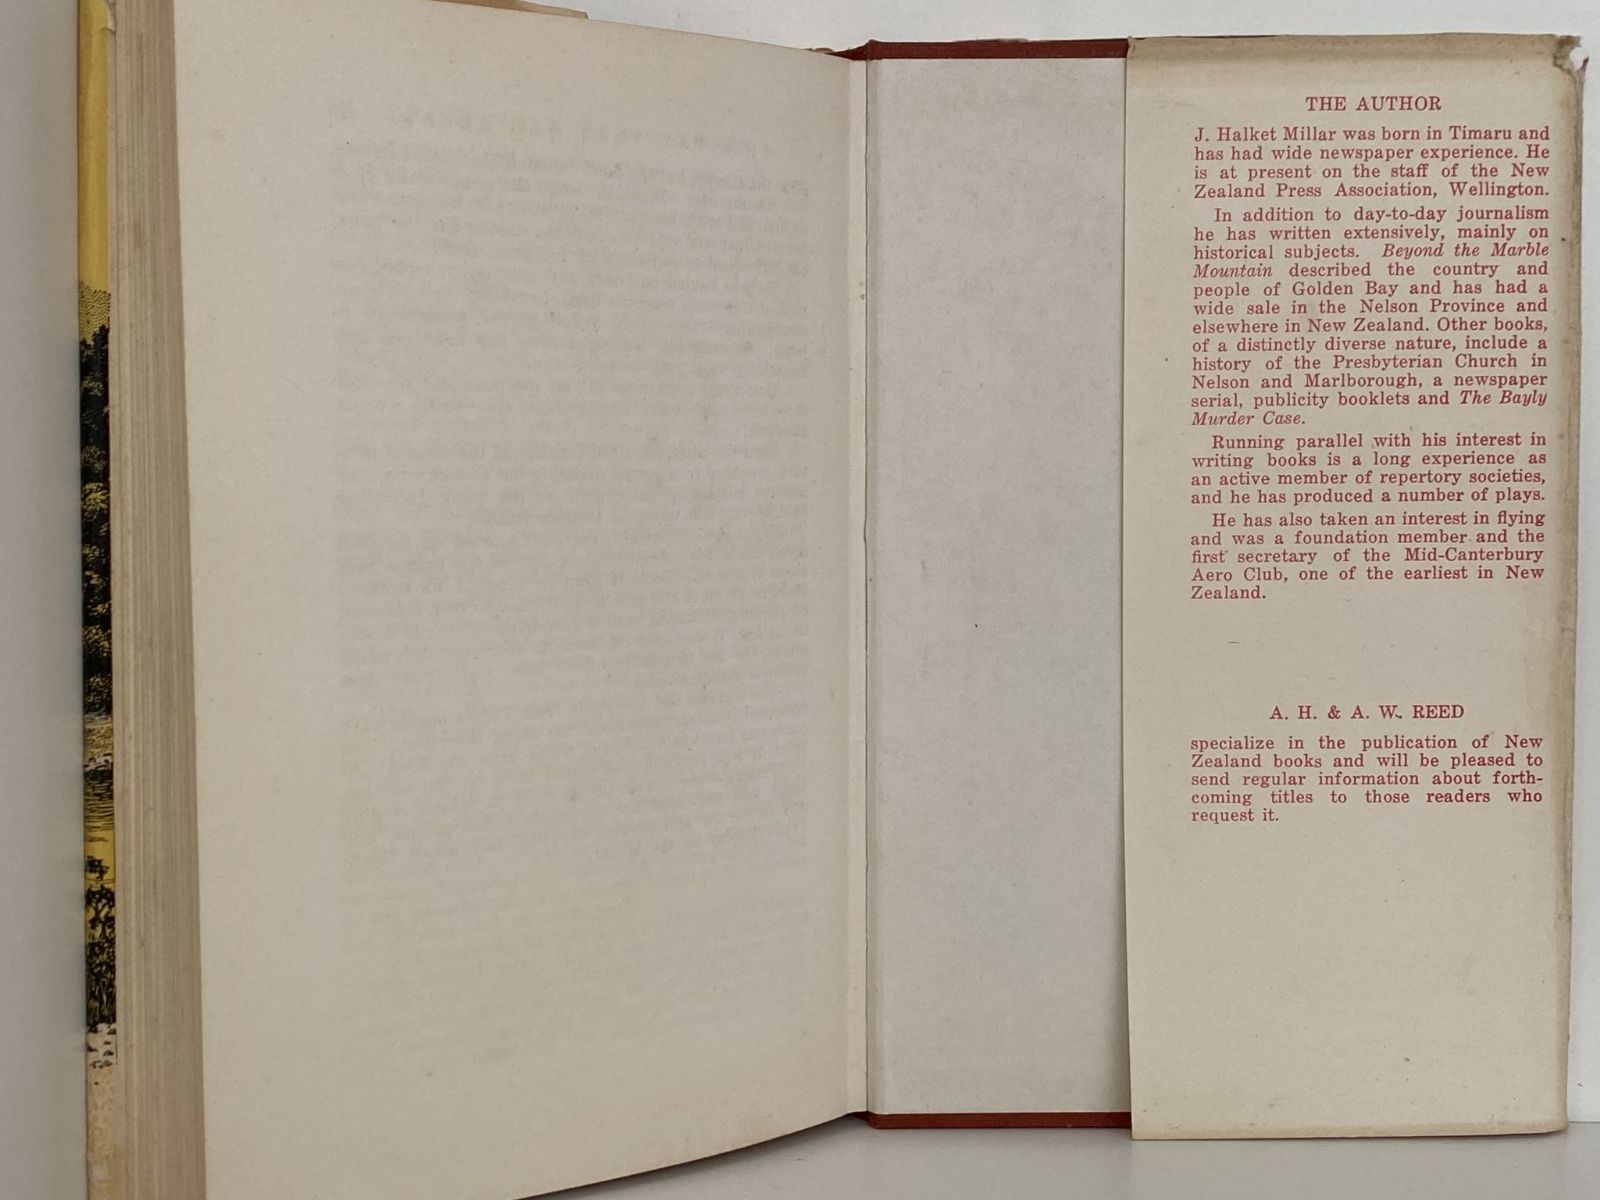 THE AUTHOR
J. Halket Millar was born in Timaru and
has had wide newspaper experience. He
is at present on the staff of the New
Zealand Press Association, Wellington.
In addition to day-to-day journalism
he has written extensively, mainly on
historical subjects. Beyond the Marble
Mountain described the country and
people of Golden Bay and has had a
wide sale in the Nelson Province and
elsewhere in New Zealand. Other books,
of a distinctly diverse nature, include a
history of the Presbyterian Church in
Nelson and Marlborough, a newspaper
serial, publicity booklets and The Bayly
Murder Case.
Running parallel with his interest in
writing books is a long experience as
an active member of repertory societies,
and he has produced a number of plays.
He has also taken an interest in flying
and was a foundation member and the
first secretary of the Mid-Canterbury
Aero Club, one of the earliest in New
Zealand.
A. H. & A. W. REED
specialize in the publication of New
Zealand books and will be pleased to
send regular information about forth-
coming titles to those readers who
request it.